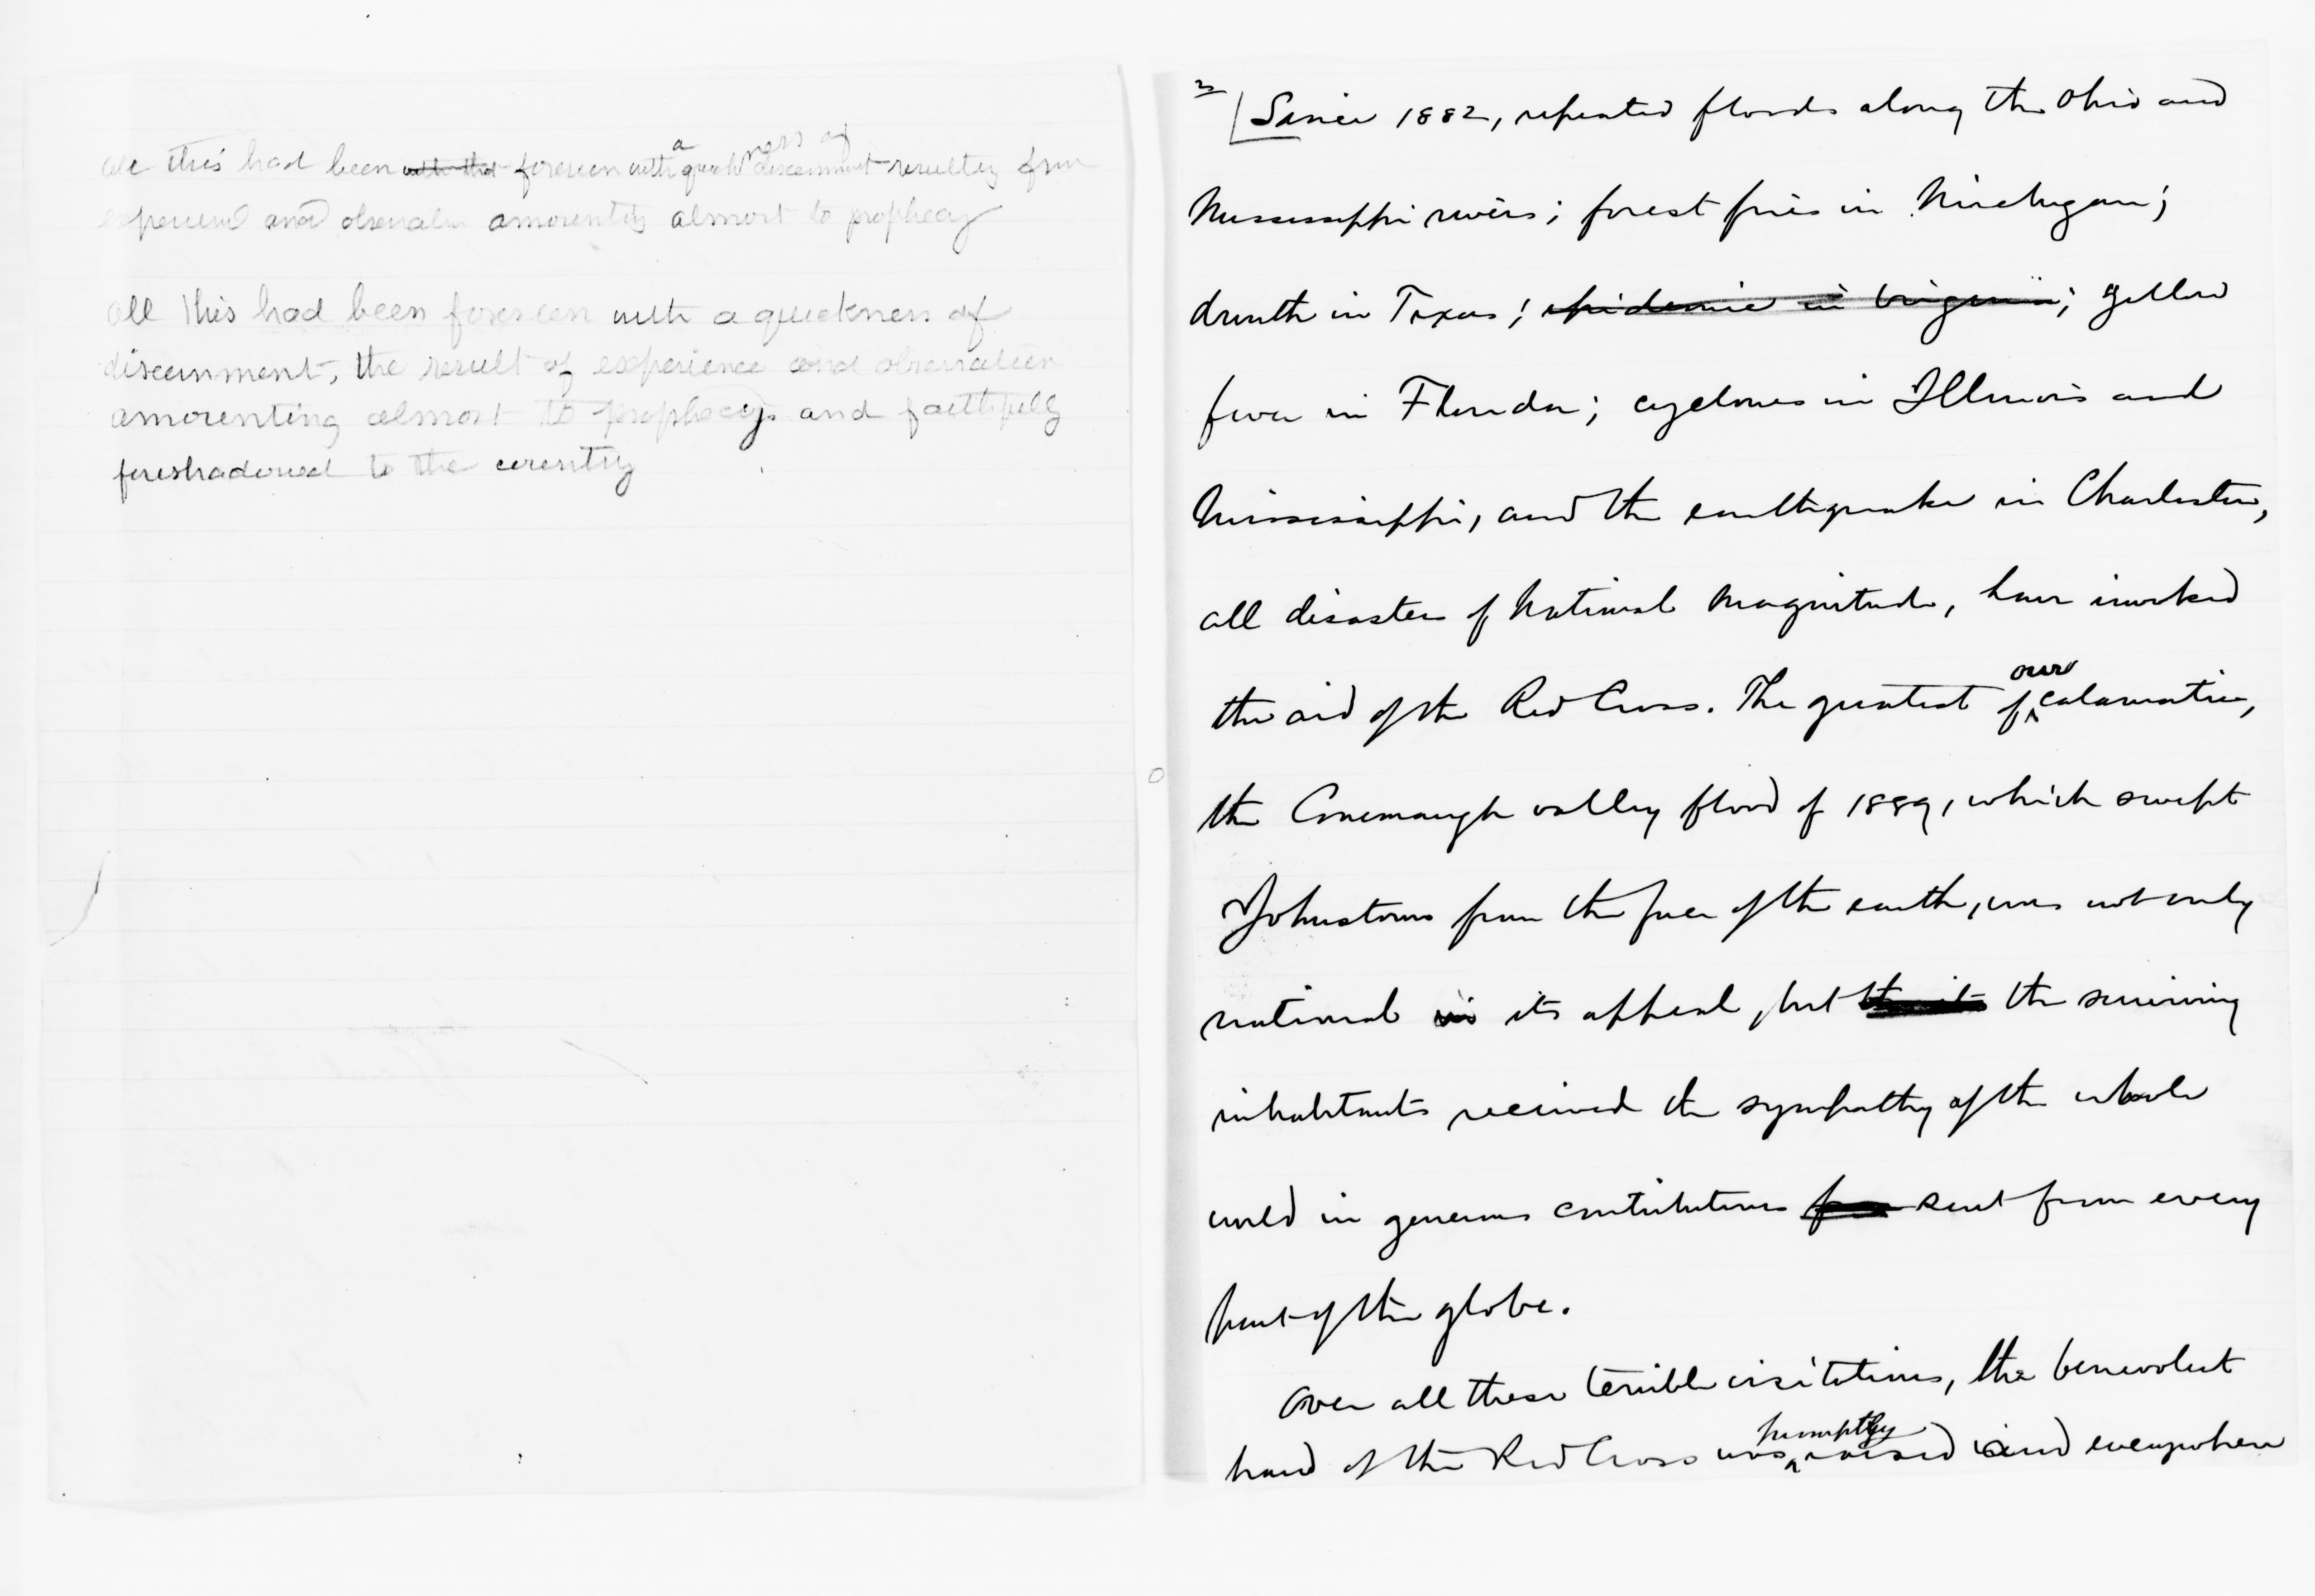 all this had been with that foreseen with a quickness of discernment resulting from
experience and observation amounting almost to prophecy
all this had been foreseen with a quickness of
discernment, the result of experience and observation
amounting almost to prophecy and faithfully
foreshadowed to the country
[Since 1882, repeated floods along the Ohio and
Mississippi rivers; forest fires in Michigan;
drouth in Texas; epidemic in Virginia; yellow
fever in Florida; cyclones in Illinois and
Mississippi, and the earthquake in Charleston,
all disasters of National Magnitude, have invoked
the aid of the Red Cross. The greatest of our calamities,
the Conemaugh valley flood of 1889, which swept
Johnstown from the face of the earth, was not only
national in its appeal, but the surviving
inhabitants received the sympathy of the whole
world in generous contributions from sent from every
part of the globe.
Over all these terrible visitations, the benevolent
hand of the Red Cross was promptly raised and everywhere